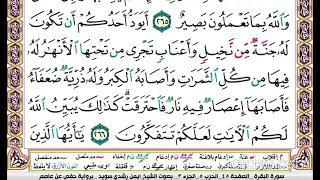 وَٱللَّهُ بِمَا تَعْمَلُونَ بَصِيرٌ ٢٦٥ أَيَوَدُّ أَحَدُكُمْ أَن تَكُونَ
لَهُۥ جَنَّةٌ مِّن نَّخِيلٍ وَأَعْنَابٍ تَجْرِى مِن تَحْتِهَا ٱلْأَنْهَٰرُ لَهُۥ
فِيهَا مِن كُلِّ ٱلثَّمَرَٰتِ وَأَصَابَهُ ٱلْكِبَرُ وَلَهُۥ ذُرِّيَّةٌ ضُعَفَآءُ
فَأَصَابَهَآ إِعْصَارٌ فِيهِ نَارٌ فَٱحْتَرَقَتْ ۗ كَذَٰلِكَ يُبَيِّنُ ٱللَّهُ
لَكُمُ ٱلْـَٔايَٰتِ لَعَلَّكُمْ تَتَفَكَّرُونَ ٢٦٦ يَٰٓأَيُّهَا ٱلَّذِينَ
سورة البقرة الصفحة ٤٥ الجزء ٣ بصوت الشيخ أيمن رشدي سويد برواية حفص عن عاصم